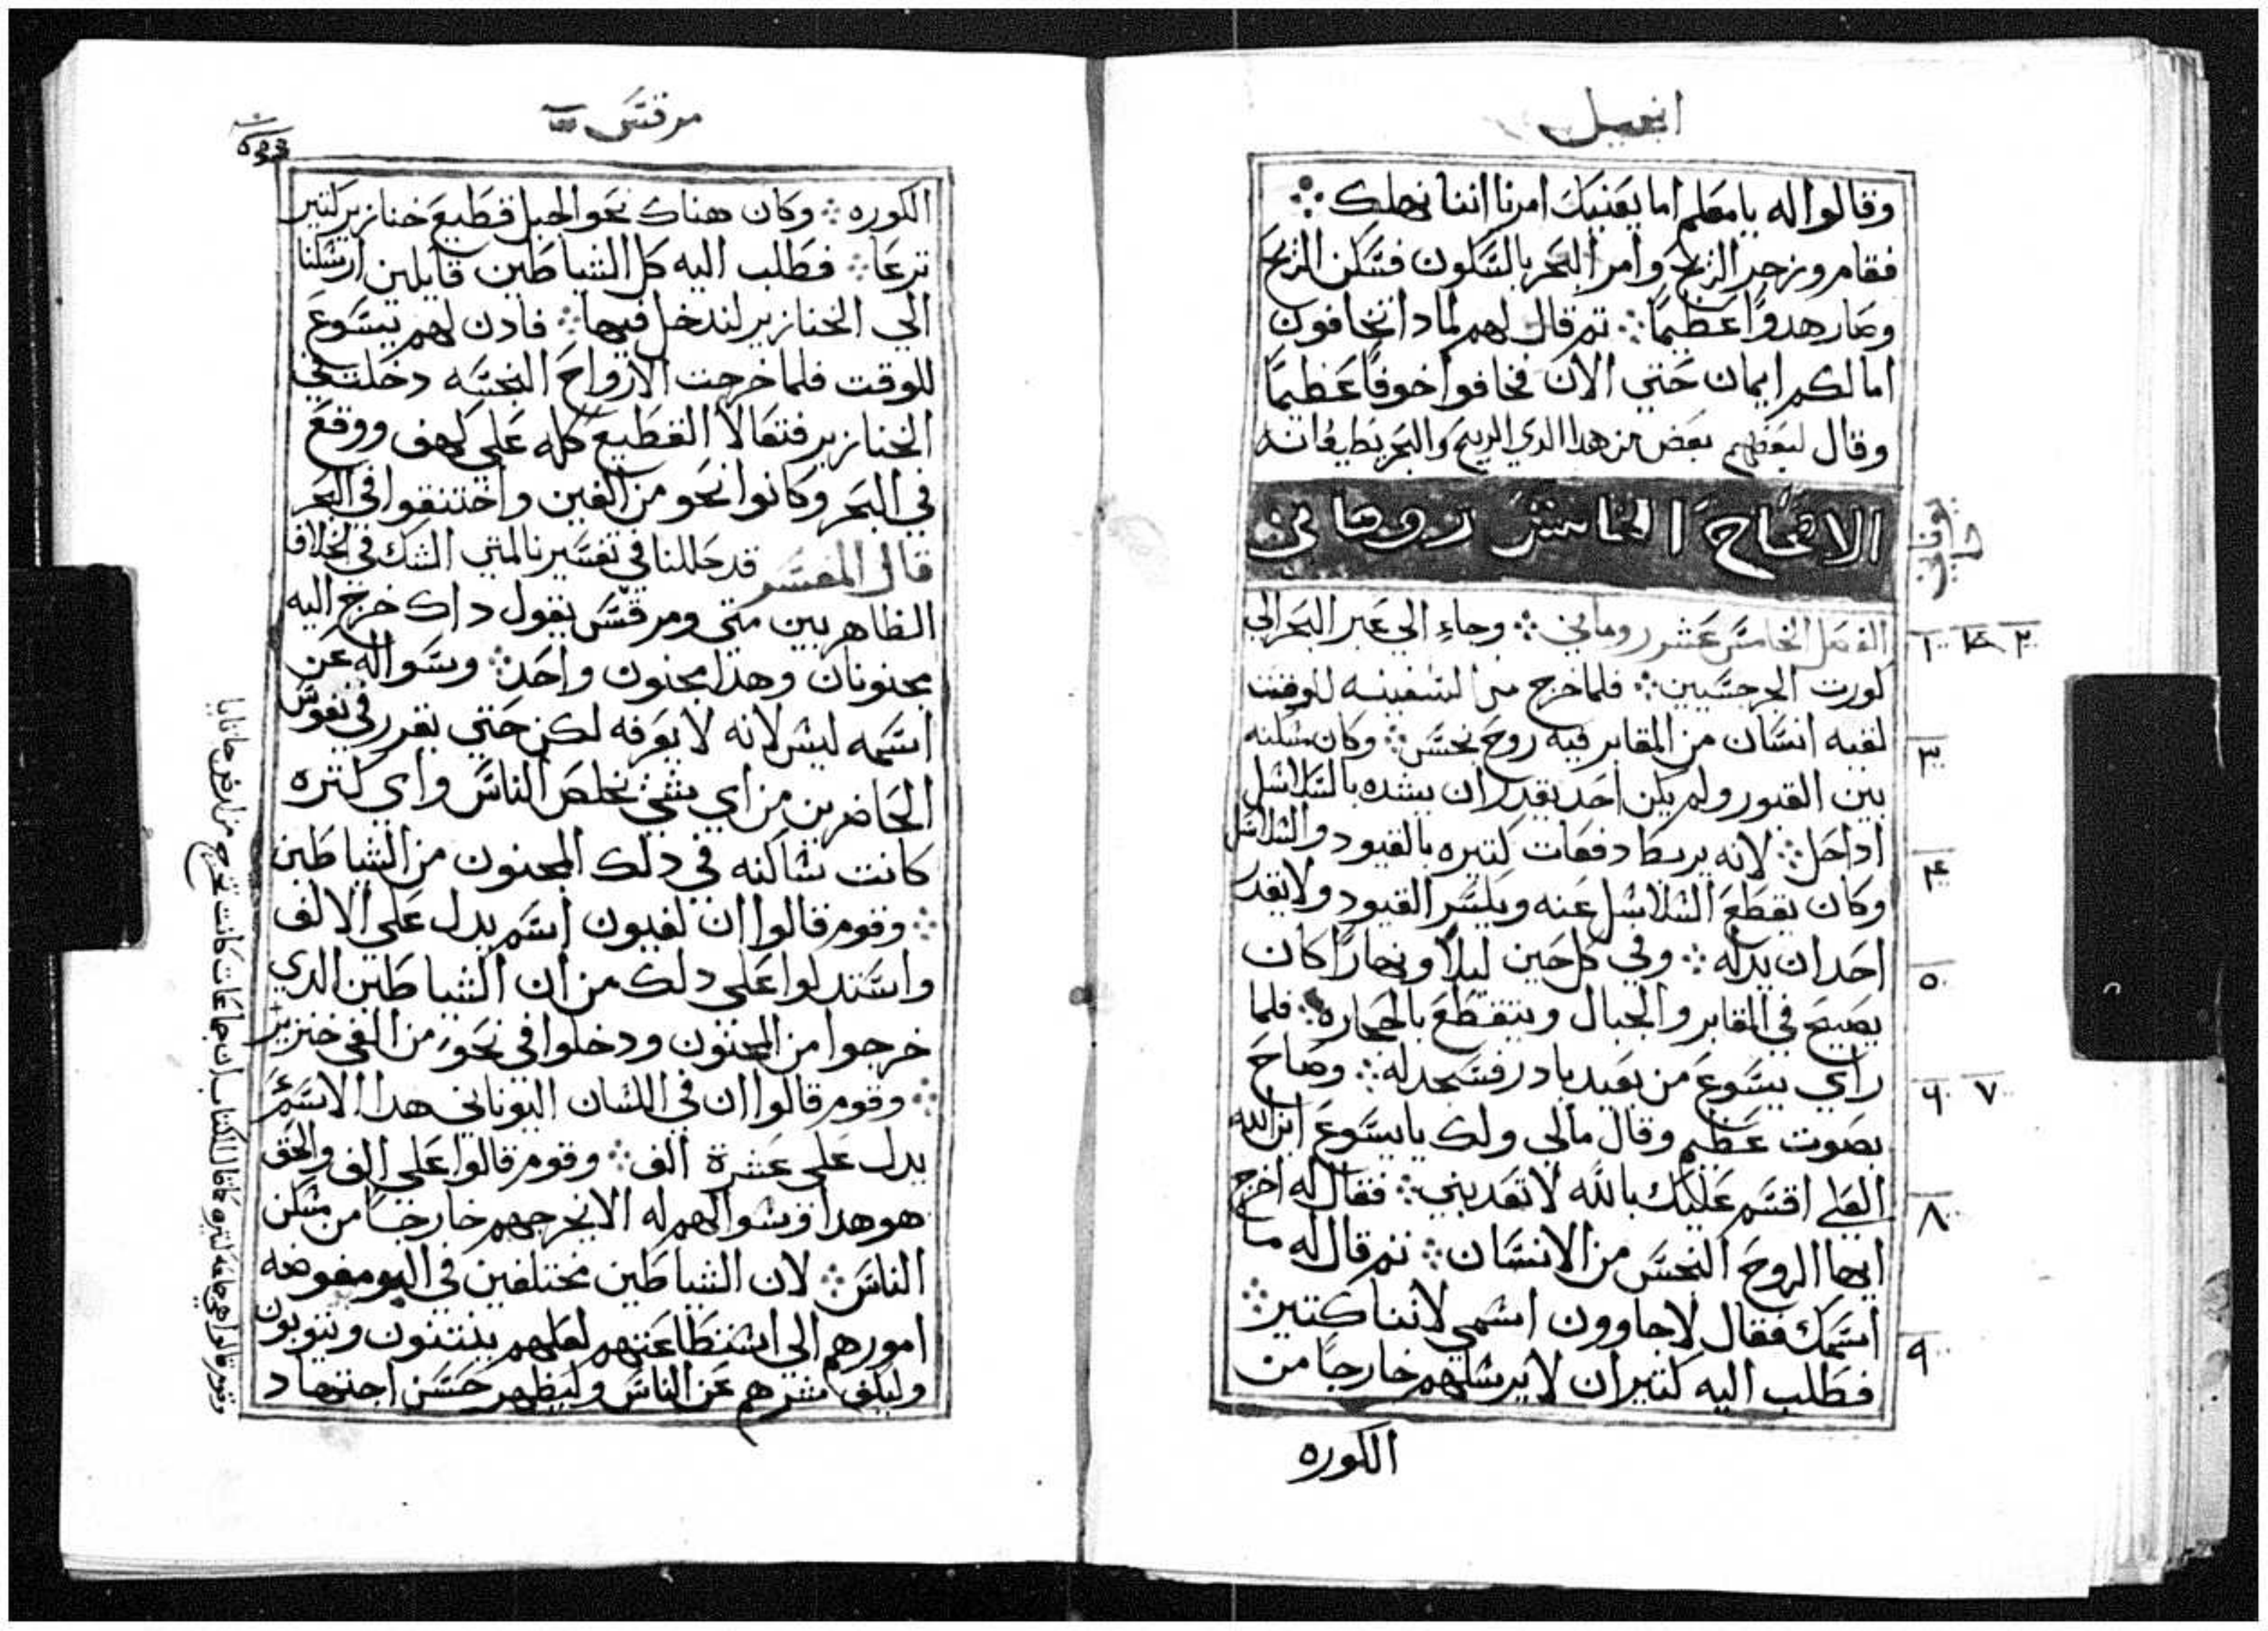 انجيل
وقالوا له يا معلم اما يعنيك امرنا اننا نهلك
فقام وزجر الريح وامر البحر بالسكون فسكن الريح
وصار هدوًا عظيمًا ثم قال لهم لمادا تخافون
اما لكم ايمان حتي الان فخافوا خوفًا عظيمًا
وقال لبعضهم بعض من هدا الدي الريح والبحر يطيعانه
الاصحاح الخامس روماني
الفصل الخامس عشر روماني وجاء الي عبر البحر الي
كورت الجرجسيين فلما خرج من السفينه للوقت
لقيه انسان من المقابر فيه روح نجس وكان مسكنه
بين القبور ولم يكن احد يقدر ان يشده بالسلاسل
اداحل لانه يربط دفعات كتيره بالقيود والسلاسل
وكان يقطع السلاسل عنه ويكسر القيود ولا يقدر
احد ان يدله وفي كل حين ليلاً ونهارًا كان
يصيح في المقابر والجبال ويتقطع بالحجاره فلما
راي يسوع من بعيد بادر فسجد له وصاح
بصوت عظيم وقال مالي ولك يا يسوع ابن الله
العلي اقسم عليك بالله لا تعدبني فقال له اخرج
ايها الروح النجس من الانسان ثم قال له ما
اسمك فقال لاجاوون اسمي لاننا كتير
فطلب اليه كتير ان لا يرسلهم خارجًا من
الكوره
مرقس
الكوره وكان هناك نحو الجبل قطيع خنازير كتير
ترعا فطلب اليه كل الشياطين قايلين ارسلنا
الي الخنازير لندخل فيها فادن لهم يسوع
للوقت فلما خرجت الارواح النجسه دخلت في
الخنازير فتعالا القطيع كله علي كهف ووقع
في البحر وكانوا نحو من الفين واختنقوا في البحر
قال المفسر قد حللنا في تفسيرنا لمتي الشك في الخلاف
الظاهر بين متي ومرقس يقول داك خرج اليه
مجنونان وهدا مجنون واحد وسواله عن
اسمه ليس لانه لا يعرفه لكن حتي يقرر في نفوس
الحاضرين من اي شي يخلص الناس واي كثره
كانت ساكنه في دلك المجنون من الشياطين
وقوم قالوا ان لغيون اسم يدل علي الالف
واستدلوا علي دلك من ان الشياطين الدي
خرجوا من المجنون ودخلوا في نحو من الفي خنزير
وقوم قالوا ان في اللسان اليوناني هدا الاسم
يدل علي عشرة الف وقوم قالوا علي الف والحق
هو هدا وسوالهم له الا يخرجهم خارجًا من مسكن
الناس لان الشياطين مختلفين في اليوم مفوضه
امورهم الي استطاعتهم لعلهم ينتنون ويتوبون
وليكف شرهم عن الناس وليظهر حسن اجتهاد